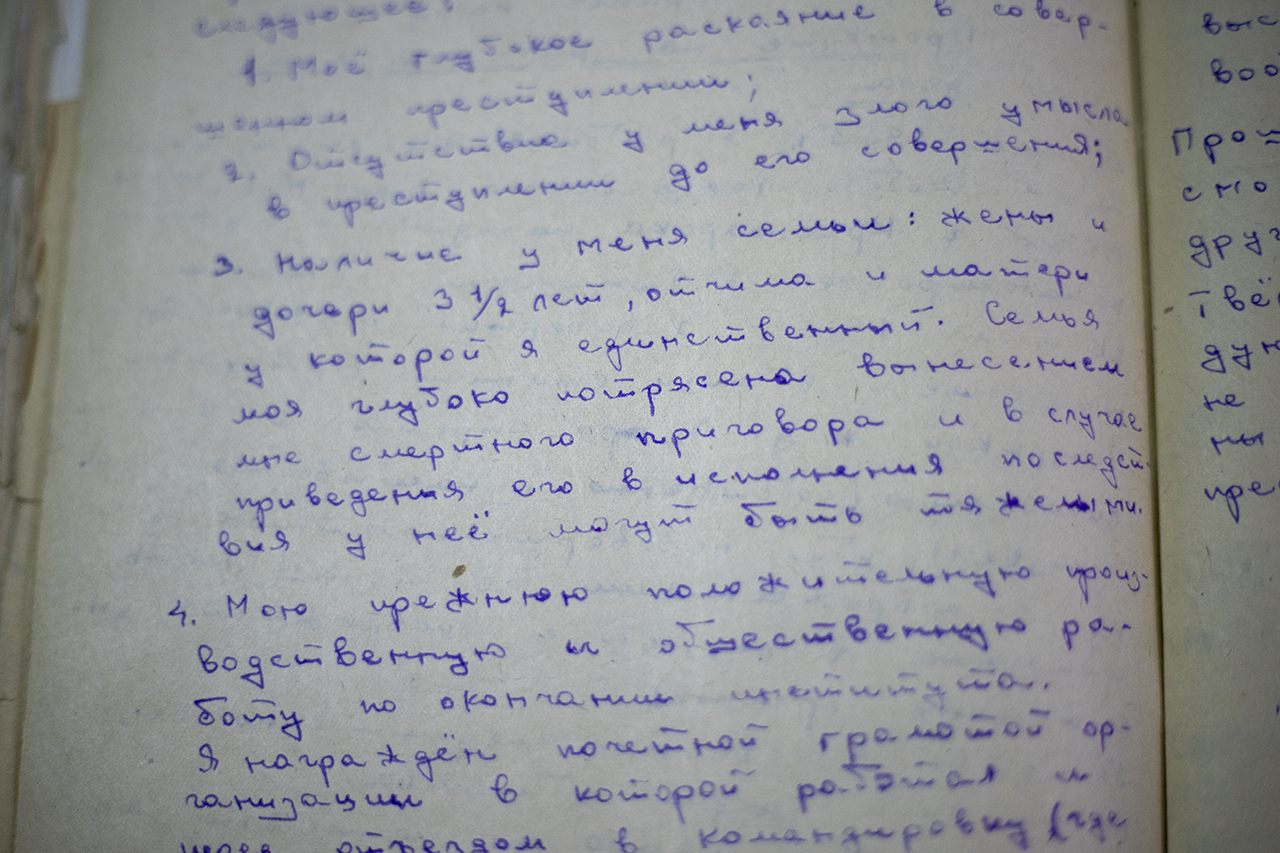 следующее:
1. Моё глубокое раскаяние в совер-
шенном преступлении;
2. Отсутствие у меня злого умысла
в преступлении до его совершения;
3. Наличие у меня семьи: жены и
дочери 3 1/2 лет, отчима и матери
у которой я единственный. Семья
моя глубоко потрясена вынесением
мне смертного приговора и в случае
приведения его в исполнения последст-
вия у неё могут быть тяжелыми.
4. Мою прежнюю положительную произ-
водственную и общественную ра-
боту по окончании института.
Я награждён почетной грамотой ор-
ганизации в которой работал и
перед отъездом в командировку (где
выс
воо
Прош
смо
друг
твё
дун
не
ны
пре